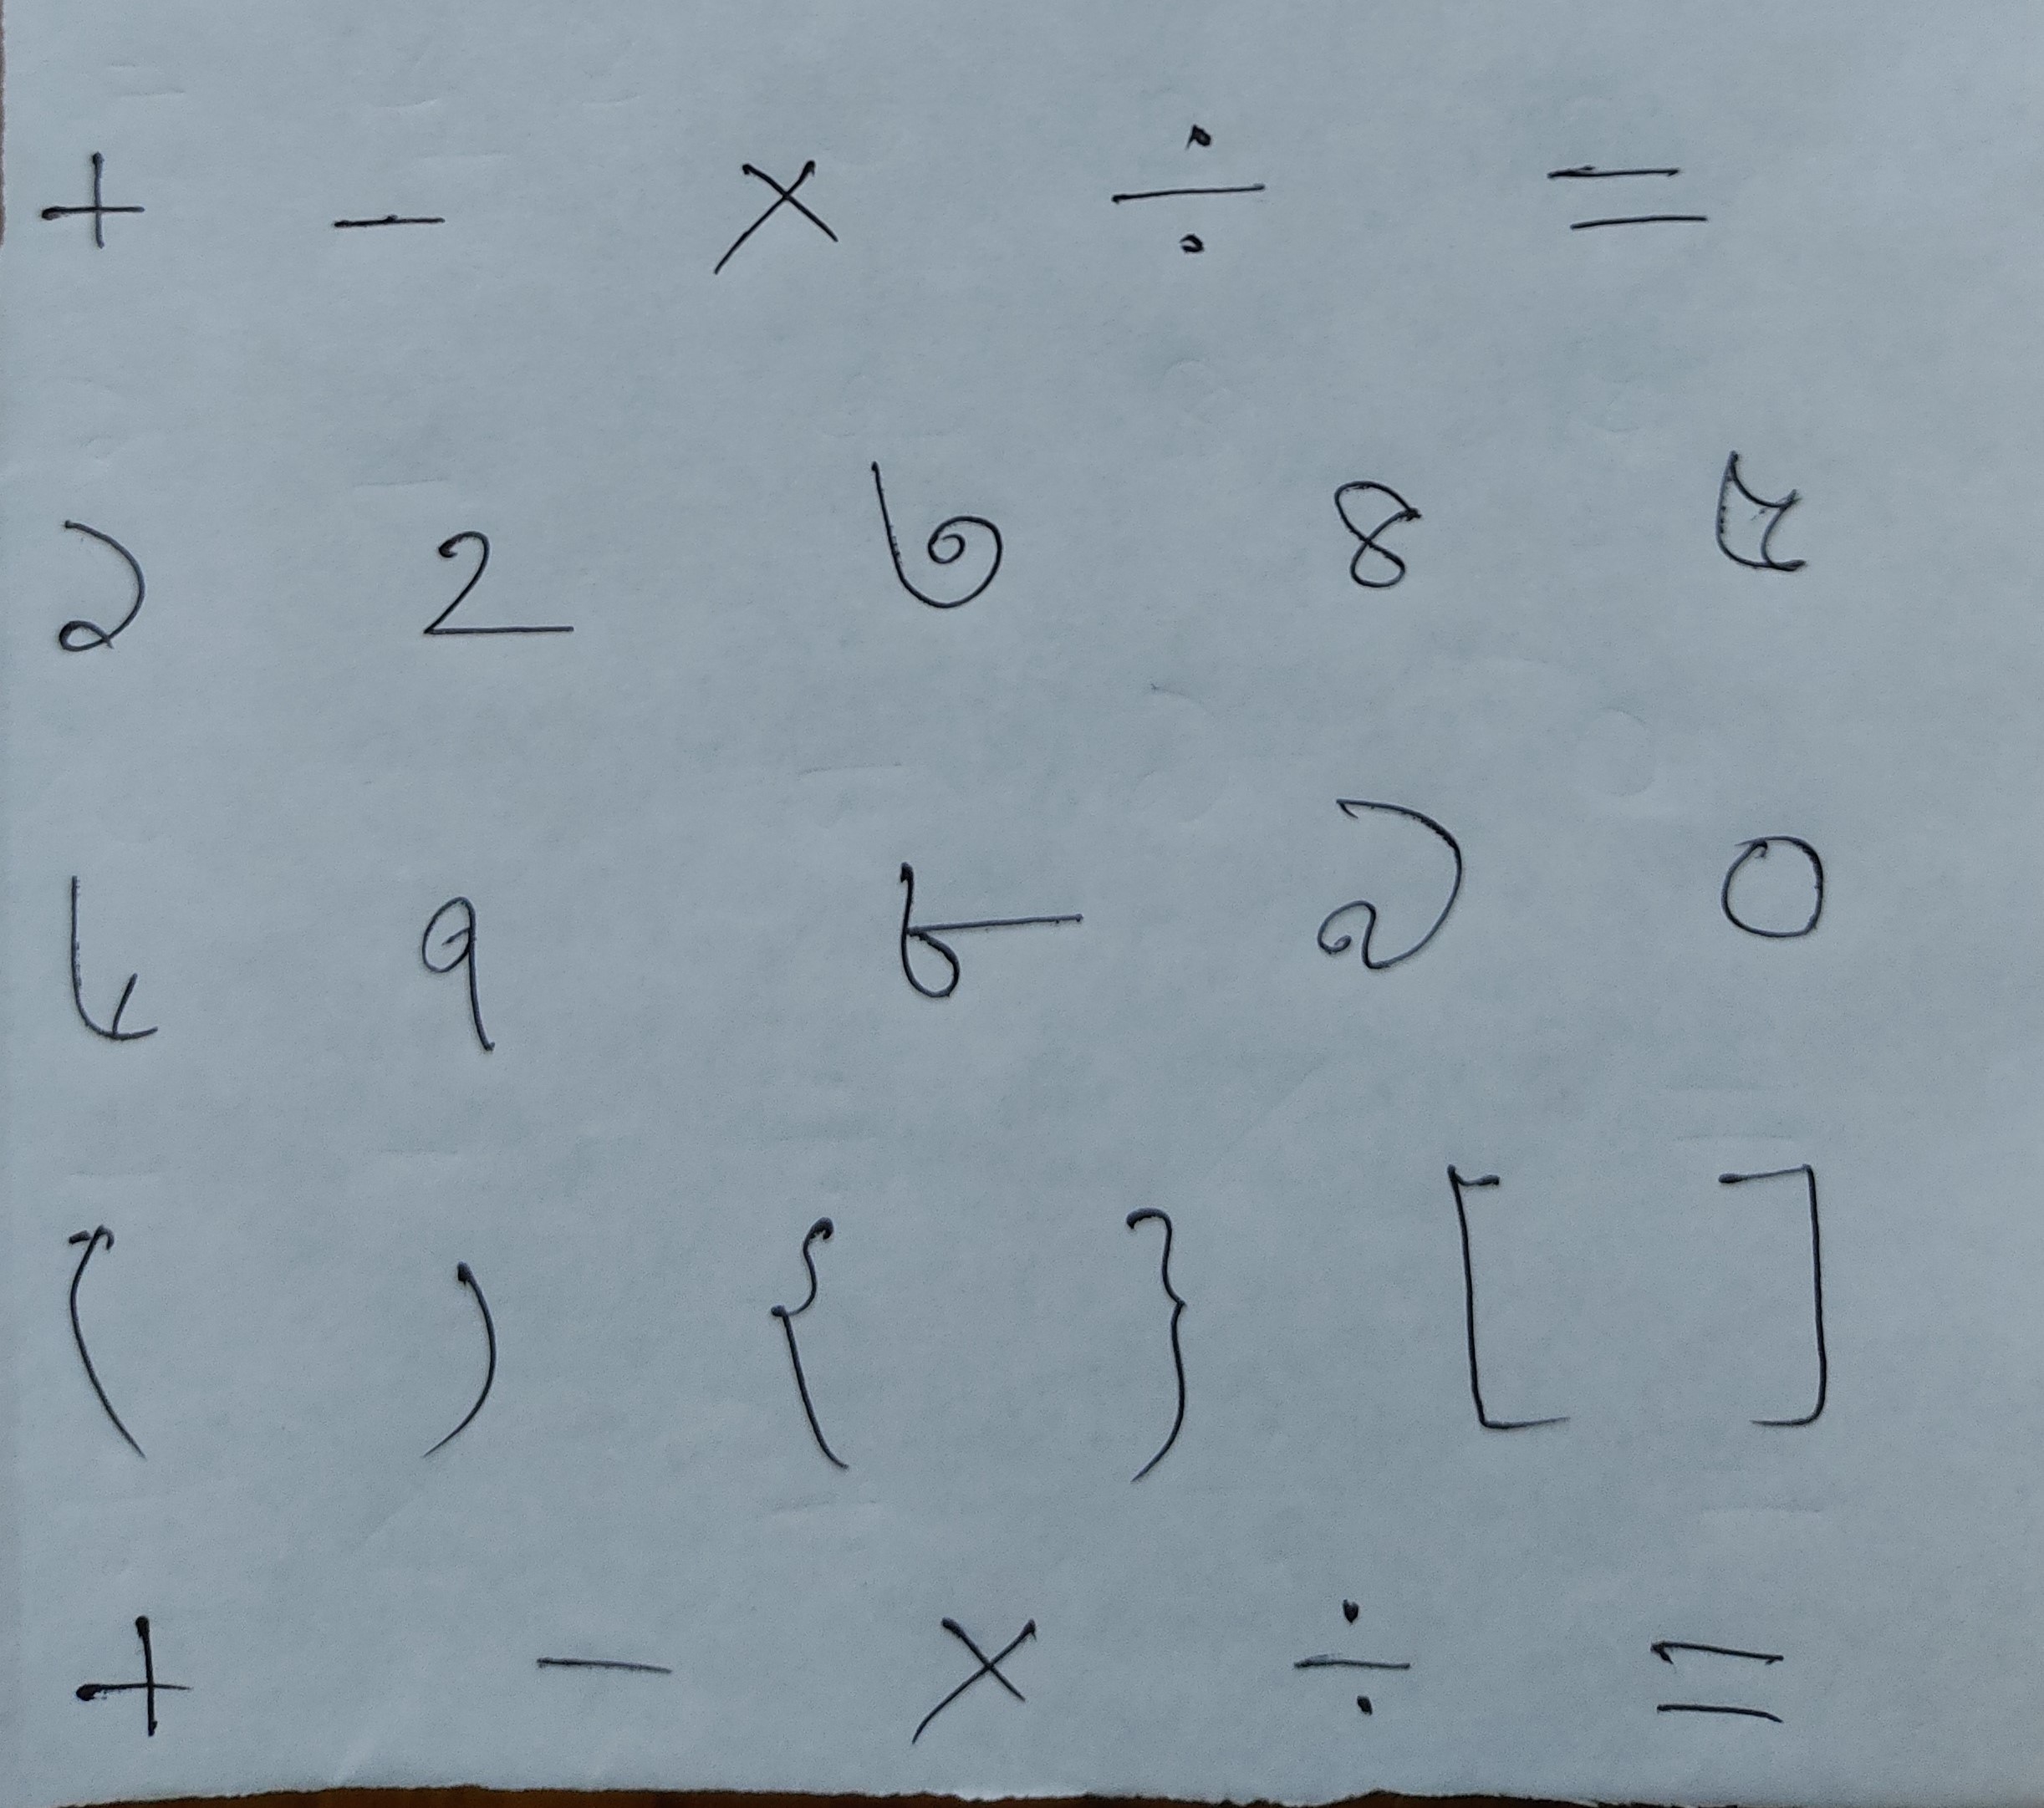 + − × ÷ =
১ ২ ৩ ৪ ৫
৬ ৭ ৮ ৯ ০
( ) { } [ ]
+ − × ÷ =